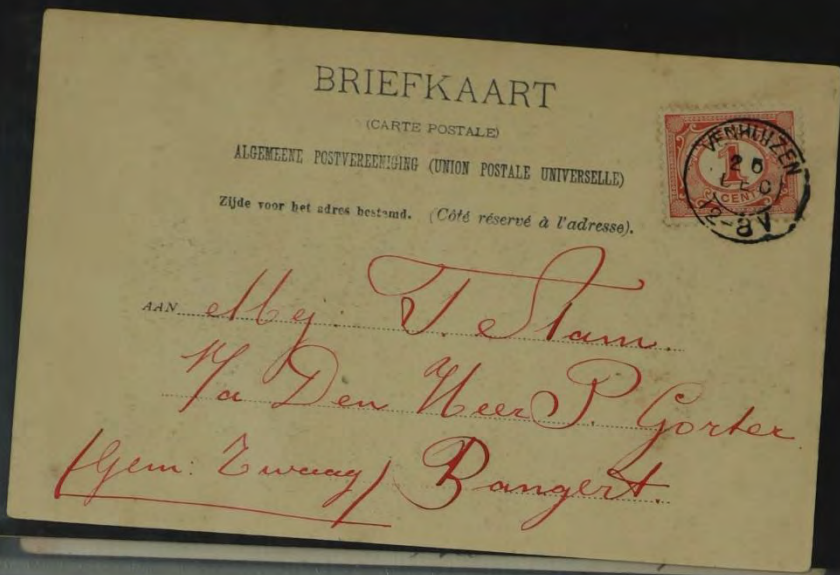 BRIEFKAART
(CARTE POSTALE)
ALGEMEENE POSTVEREENIGING (UNION POSTALE UNIVERSELLE)
Zijde voor het adres bestemd. (Côté réservé à l'adresse).
1
CENT
VENHUIZEN
25
DEC
12-8V
AAN Mej. T. Stam.
p/a Den Heer P. Gorter
(Gem: Zwaag) Bangert.